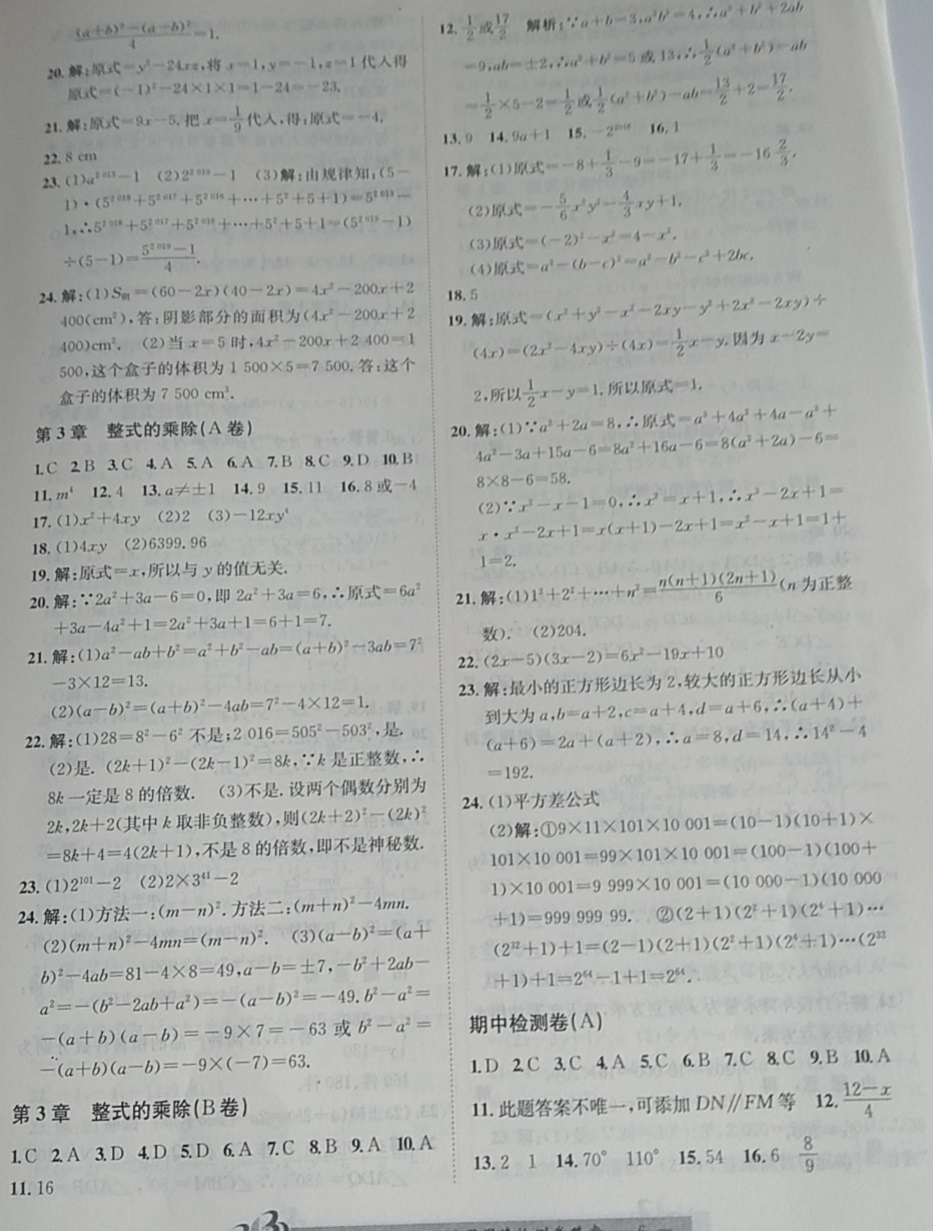 ((a+b)²-(a-b)²)/4=1.
20. 解:原式=y²-24xz,将 x=1,y=-1,z=1 代入得
原式=(-1)²-24×1×1=1-24=-23.
21. 解:原式=9x-5,把 x=1/9代入,得:原式=-4.
22. 8 cm
23. (1)a²⁰¹⁹-1 (2)2²⁰¹⁹-1 (3)解:由规律知:(5-
1)·(5²⁰¹⁸+5²⁰¹⁷+5²⁰¹⁶+…+5²+5+1)=5²⁰¹⁹-
1,∴5²⁰¹⁸+5²⁰¹⁷+5²⁰¹⁶+…+5²+5+1=(5²⁰¹⁹-1)
÷(5-1)=(5²⁰¹⁹-1)/4.
24. 解:(1)S阴=(60-2x)(40-2x)=4x²-200x+2
400(cm²),答:阴影部分的面积为(4x²-200x+2
400)cm². (2)当 x=5 时,4x²-200x+2 400=1
500,这个盒子的体积为 1 500×5=7 500.答:这个
盒子的体积为 7 500 cm³.
第 3 章 整式的乘除(A 卷)
1. C 2. B 3. C 4. A 5. A 6. A 7. B 8. C 9. D 10. B
11. m⁴ 12. 4 13. a≠±1 14. 9 15. 11 16. 8 或-4
17. (1)x²+4xy (2)2 (3)-12xy⁴
18. (1)4xy (2)6399.96
19. 解:原式=x,所以与 y 的值无关.
20. 解:∵2a²+3a-6=0,即 2a²+3a=6,∴原式=6a²
+3a-4a²+1=2a²+3a+1=6+1=7.
21. 解:(1)a²-ab+b²=a²+b²-ab=(a+b)²-3ab=7²
-3×12=13.
(2)(a-b)²=(a+b)²-4ab=7²-4×12=1.
22. 解:(1)28=8²-6² 不是;2 016=505²-503²,是.
(2)是. (2k+1)²-(2k-1)²=8k,∵k 是正整数,∴
8k 一定是 8 的倍数. (3)不是. 设两个偶数分别为
2k,2k+2(其中 k 取非负整数),则(2k+2)²-(2k)²
=8k+4=4(2k+1),不是 8 的倍数,即不是神秘数.
23. (1)2¹⁰¹-2 (2)2×3⁴¹-2
24. 解:(1)方法一:(m-n)². 方法二:(m+n)²-4mn.
(2)(m+n)²-4mn=(m-n)². (3)(a-b)²=(a+
b)²-4ab=81-4×8=49,a-b=±7,-b²+2ab-
a²=-(b²-2ab+a²)=-(a-b)²=-49. b²-a²=
-(a+b)(a-b)=-9×7=-63 或 b²-a²=
-(a+b)(a-b)=-9×(-7)=63.
第 3 章 整式的乘除(B 卷)
1. C 2. A 3. D 4. D 5. D 6. A 7. C 8. B 9. A 10. A
11. 16
12. 1/2或17/2 解析:∵a+b=3,a²b²=4,∴a²+b²+2ab
=9,ab=±2,∴a²+b²=5 或 13,∴1/2(a²+b²)-ab
=1/2×5-2=1/2或1/2(a²+b²)-ab=13/2+2=17/2.
13. 9 14. 9a+1 15. -2²⁰¹⁸ 16. 1
17. 解:(1)原式=-8+1/3-9=-17+1/3=-16 2/3.
(2)原式=-5/6x²y²-4/3xy+1.
(3)原式=(-2)²-x²=4-x².
(4)原式=a²-(b-c)²=a²-b²-c²+2bc.
18. 5
19. 解:原式=(x²+y²-x²-2xy-y²+2x²-2xy)÷
(4x)=(2x²-4xy)÷(4x)=1/2x-y.因为 x-2y=
2,所以1/2x-y=1.所以原式=1.
20. 解:(1)∵a²+2a=8,∴原式=a³+4a²+4a-a³+
4a²-3a+15a-6=8a²+16a-6=8(a²+2a)-6=
8×8-6=58.
(2)∵x²-x-1=0,∴x²=x+1,∴x³-2x+1=
x·x²-2x+1=x(x+1)-2x+1=x²-x+1=1+
1=2.
21. 解:(1)1²+2²+…+n²=n(n+1)(2n+1)/6(n 为正整
数). (2)204.
22. (2x-5)(3x-2)=6x²-19x+10
23. 解:最小的正方形边长为 2,较大的正方形边长从小
到大为 a,b=a+2,c=a+4,d=a+6,∴(a+4)+
(a+6)=2a+(a+2),∴a=8,d=14,∴14²-4
=192.
24. (1)平方差公式
(2)解:①9×11×101×10 001=(10-1)(10+1)×
101×10 001=99×101×10 001=(100-1)(100+
1)×10 001=9 999×10 001=(10 000-1)(10 000
+1)=999 999 99. ②(2+1)(2²+1)(2⁴+1)…
(2³²+1)+1=(2-1)(2+1)(2²+1)(2⁴+1)…(2³²
+1)+1=2⁶⁴-1+1=2⁶⁴.
期中检测卷(A)
1. D 2. C 3. C 4. A 5. C 6. B 7. C 8. C 9. B 10. A
11. 此题答案不唯一,可添加 DN∥FM 等 12. (12-x)/4
13. 2 1 14. 70° 110° 15. 54 16. 6 8/9